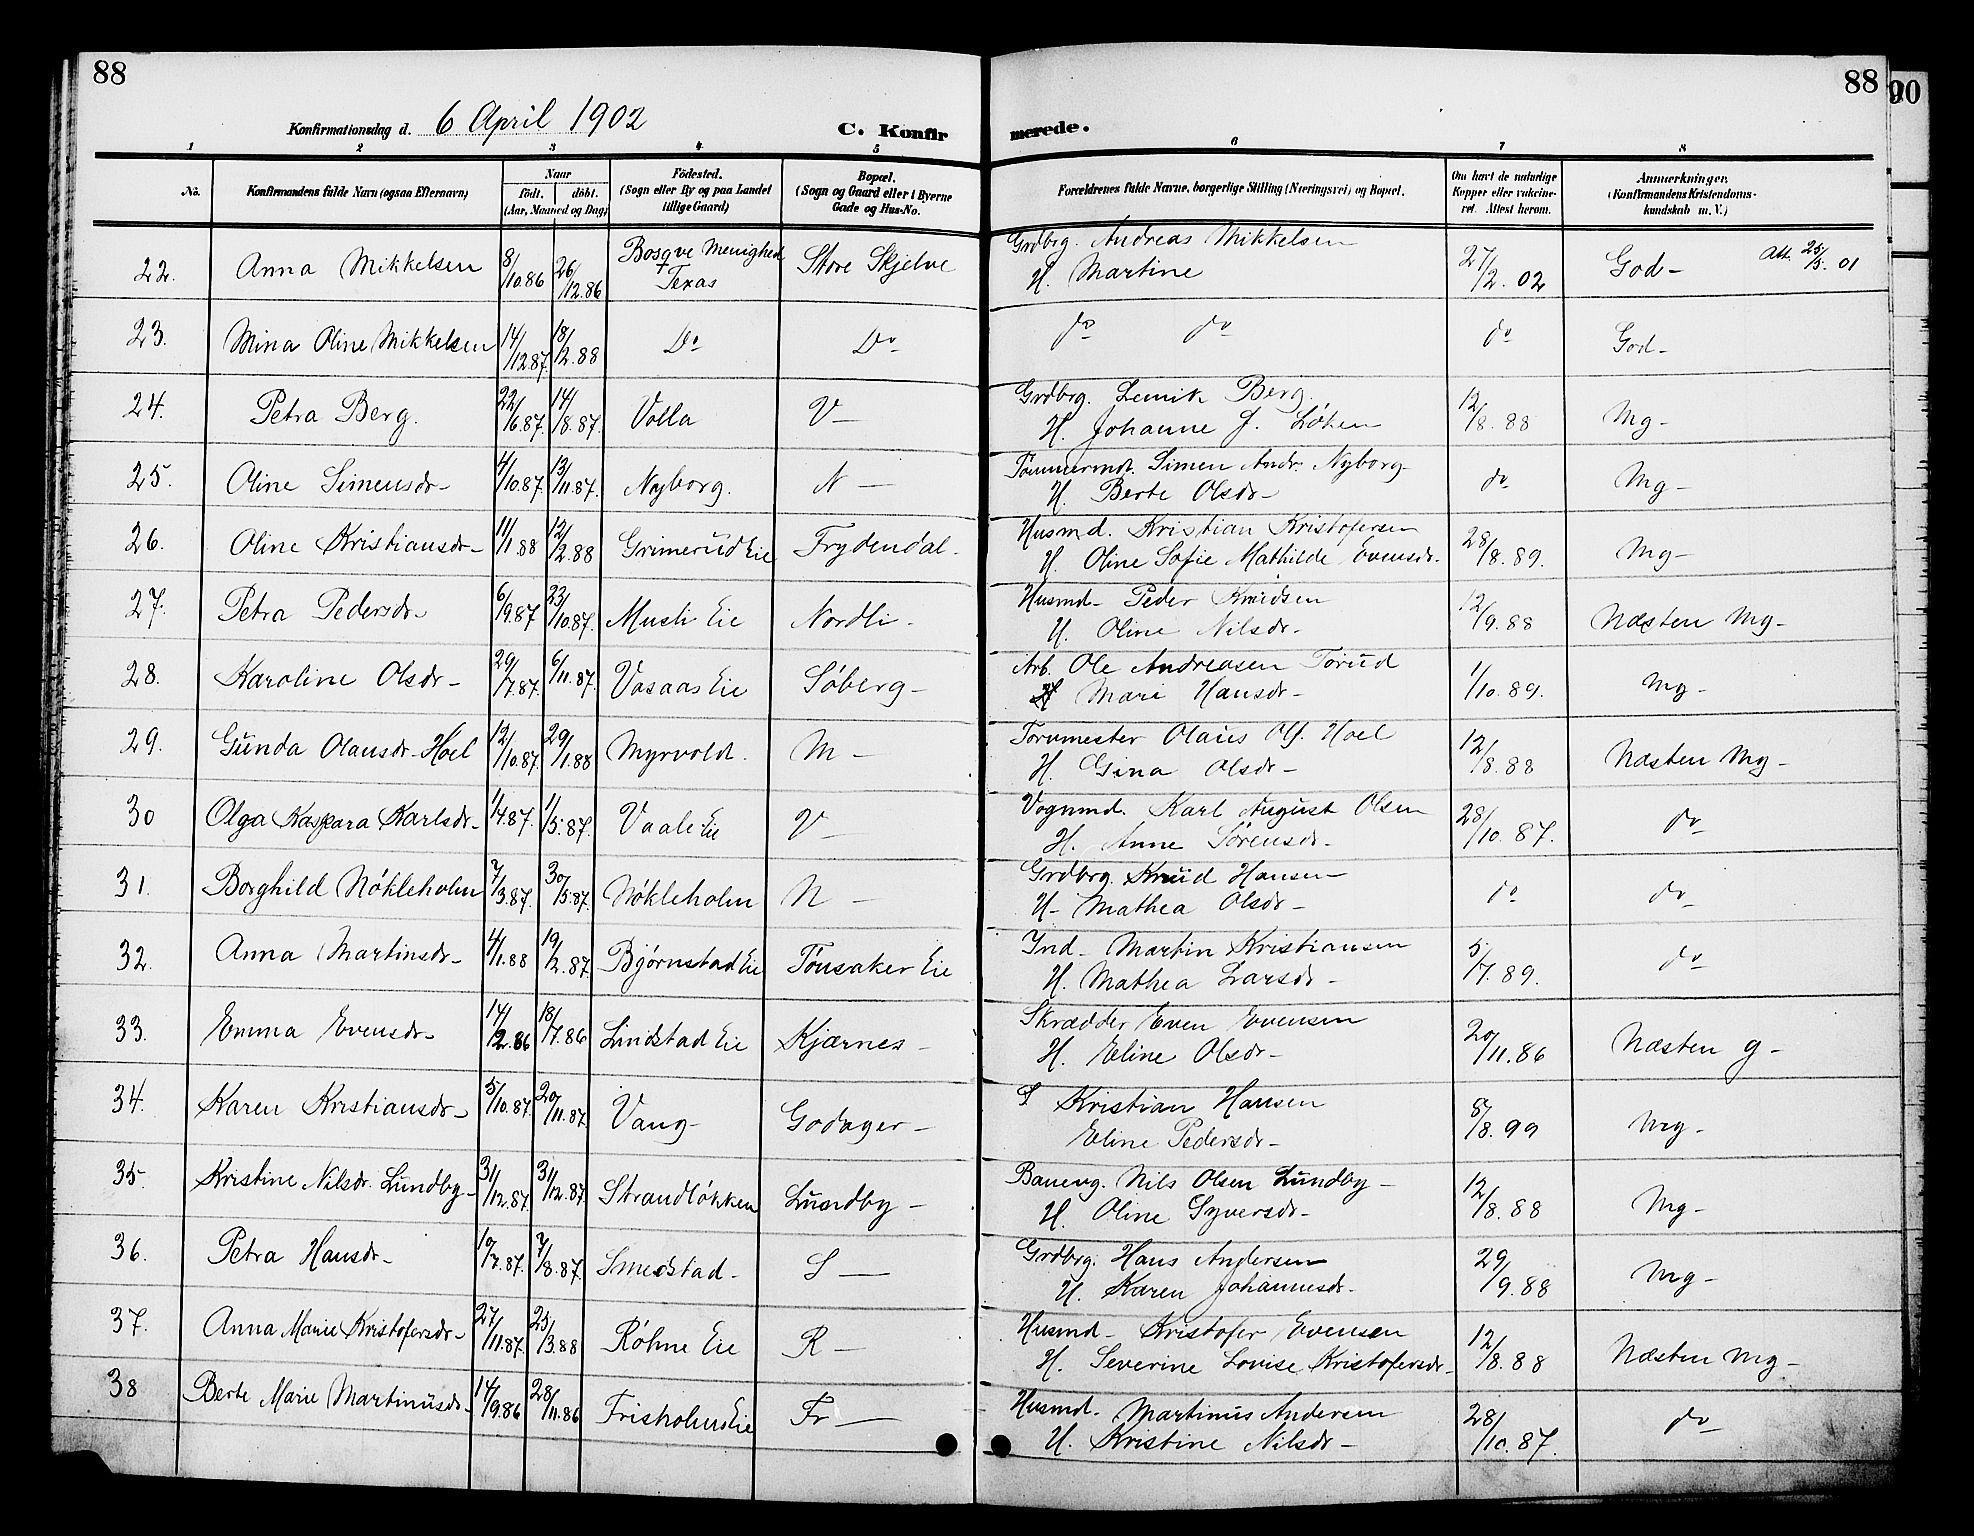 88
88
90
Konfirmationsdag d. 6 April 1902
C. Konfirmerede.
1 2 3 4 5 6 7 8
No. Konfirmandens fulde Navn (ogsaa Efternavn) Naar født. døbt. (Aar, Maaned og Dag) Fødested. (Sogn eller By og paa Landet tillige Gaard) Bopæl. (Sogn og Gaard eller i Byerne Gade og Hus-No. Forældrenes fulde Navne, borgerlige Stilling (Næringsvei) og Bopæl. Om havt de naturlige Kopper eller vakcineret. Attest herom. Anmerkninger. (Konfirmandens Kristendomskundskab m. V.)
22. Anna Mikkelsen 8/10.86 26/12.86 Bosqve Menighed Texas Store Skjelve Grdbrg. Andreas Mikkelsen 27/2.02 God- Att. 25/5.01
H. Martine
23. Mina Oline Mikkelsen 14/12.87. 18/2.88 Do Do do do do God-
24. Petra Berg. 22/6.87. 14/8.87. Volla V- Grdbrg. Lemik Berg. 12/8.88 Mg-
H. Johanne J. Løken
25. Oline Simensdr- 4/10.87. 13/11.87. Nyborg. N- Tømmermd. Simen Andr. Nyborg- do Mg-
H. Berte Olsdr-
26. Oline Kristiansdr- 11/1.88 12/2.88 Grimerud Eie Frydendal. Husmd. Kristian Kristofersen 28/8.89. Mg-
H. Oline Sofie Mathilde Evensdr.
27. Petra Pedersdr- 6/9.87 23/10.87. Musli Eie Nordli- Husmd- Peder Knudsen 12/9.88 Næsten Mg-
H. Oline Nilsdr-
28. Karoline Olsdr- 29/7.87. 6/11.87. Vasaas Eie Søberg- Arb. Ole Andreasen Torud 1/10.89. Mg-
H Mari Hansdr-
29. Gunda Olausdr. Hoel 12/10.87. 29/1.88 Myrvold. M- Torvmester Olaus Ols. Hoel 12/8.88 Næsten Mg-
H. Gina Olsdr-
30 Olga Kaspara Karlsdr- 1/4.87. 1/5.87. Vaali Eie V- Vognmd. Karl August Olsen 28/10.87. do
H. Anne Sørensdr-
31. Borghild Nøkleholm 7/3.87. 30/5.87. Nøkleholm N- Grdbrg. Knud Hansen- do do
H- Mathea Olsdr-
32. Anna Martinsdr- 4/1.88 19/2.87. Bjørnstad Eie Tønsaker Eie Ind- Martin Kristiansen 5/7.89. do
H. Mathea Larsdr-
33. Emma Evensdr- 14/2.86 18/7.86 Lindstad Eie Kjærnes- Skrædder Even Evensen 20/11.86 Næsten g-
H. Eline Olsdr-
34. Karen Kristiansdr- 5/10.87. 20/11.87. Vang- Godager- S Kristian Hansen 8/8.99 Mg-
Eline Pedersdr-
35. Kristine Nilsdr. Lundby- 31/12.87. 31/12.87. Strandløkken Lundby- Banevg. Nils Olsen Lundby- 12/8.88 Mg-
H. Oline Syversdr-
36. Petra Hansdr- 10/7.87. 7/8.87. Smedstad- S- Grdbrg. Hans Andersen 29/9.88 Mg-
H. Karen Johannesdr.
37. Anna Marie Kristofersdr- 27/11.87. 25/3.88 Røhne Eie R- Husmd- Kristofer Evensen 12/8.88 Næsten Mg-
H. Severine Lovise Kristofersdr
38 Berte Marie Martinusdr- 14/9.86 28/11.86 Frisholm Eie Fr- Husmd. Martinus Andersen 28/10.87. do
H. Kristine Nilsdr-